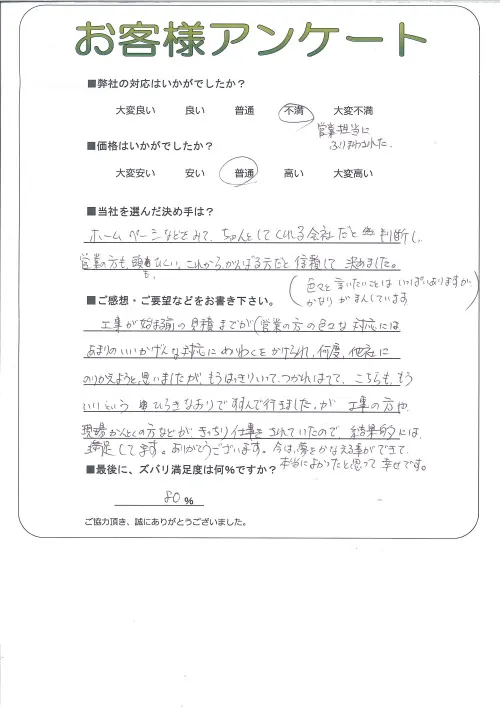 お客様アンケート
■弊社の対応はいかがでしたか？
大変良い 良い 普通 不満 大変不満
営業担当に
ふりまわされた。
■価格はいかがでしたか？
大変安い 安い 普通 高い 大変高い
■当社を選んだ決め手は？
ホームページなどをみて、ちゃんとしてくれる会社だと判断し、
営業の方も、頭もひくい、これから、がんばる方だと信頼して決めました。
（色々と言いたいことはいっぱいありますが、
かなりがまんしています）
■ご感想・ご要望などをお書き下さい。
工事が始まる前の見積までが（営業の方の色々な対応には
あまりのいいかげんな対応にめいわくをかけられ、何度、他社に
のりかえようと、思いましたが、もうはっきりいって、つかれはてて、こちらも、もう
いいという ひらきなおりですすんで行きました。が 工事の方や、
現場かんとくの方などが、きっちり仕事をされていたので、結果的には、
満足してます。ありがとうございます。今は、夢をかなえる事ができて、
本当によかったと思って幸せです。
■最後に、ズバリ満足度は何%ですか？
80 %
ご協力頂き、誠にありがとうございました。